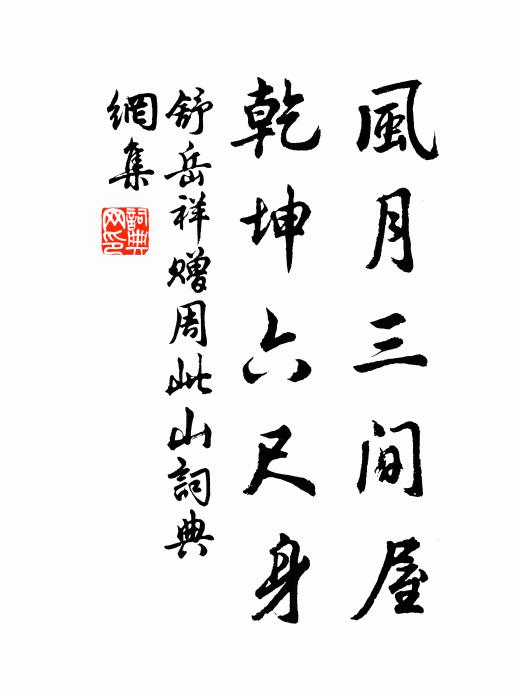 風月三间屋
乾坤六尺身
舒岳祥赠周此山詞典
網集
詞典
网印